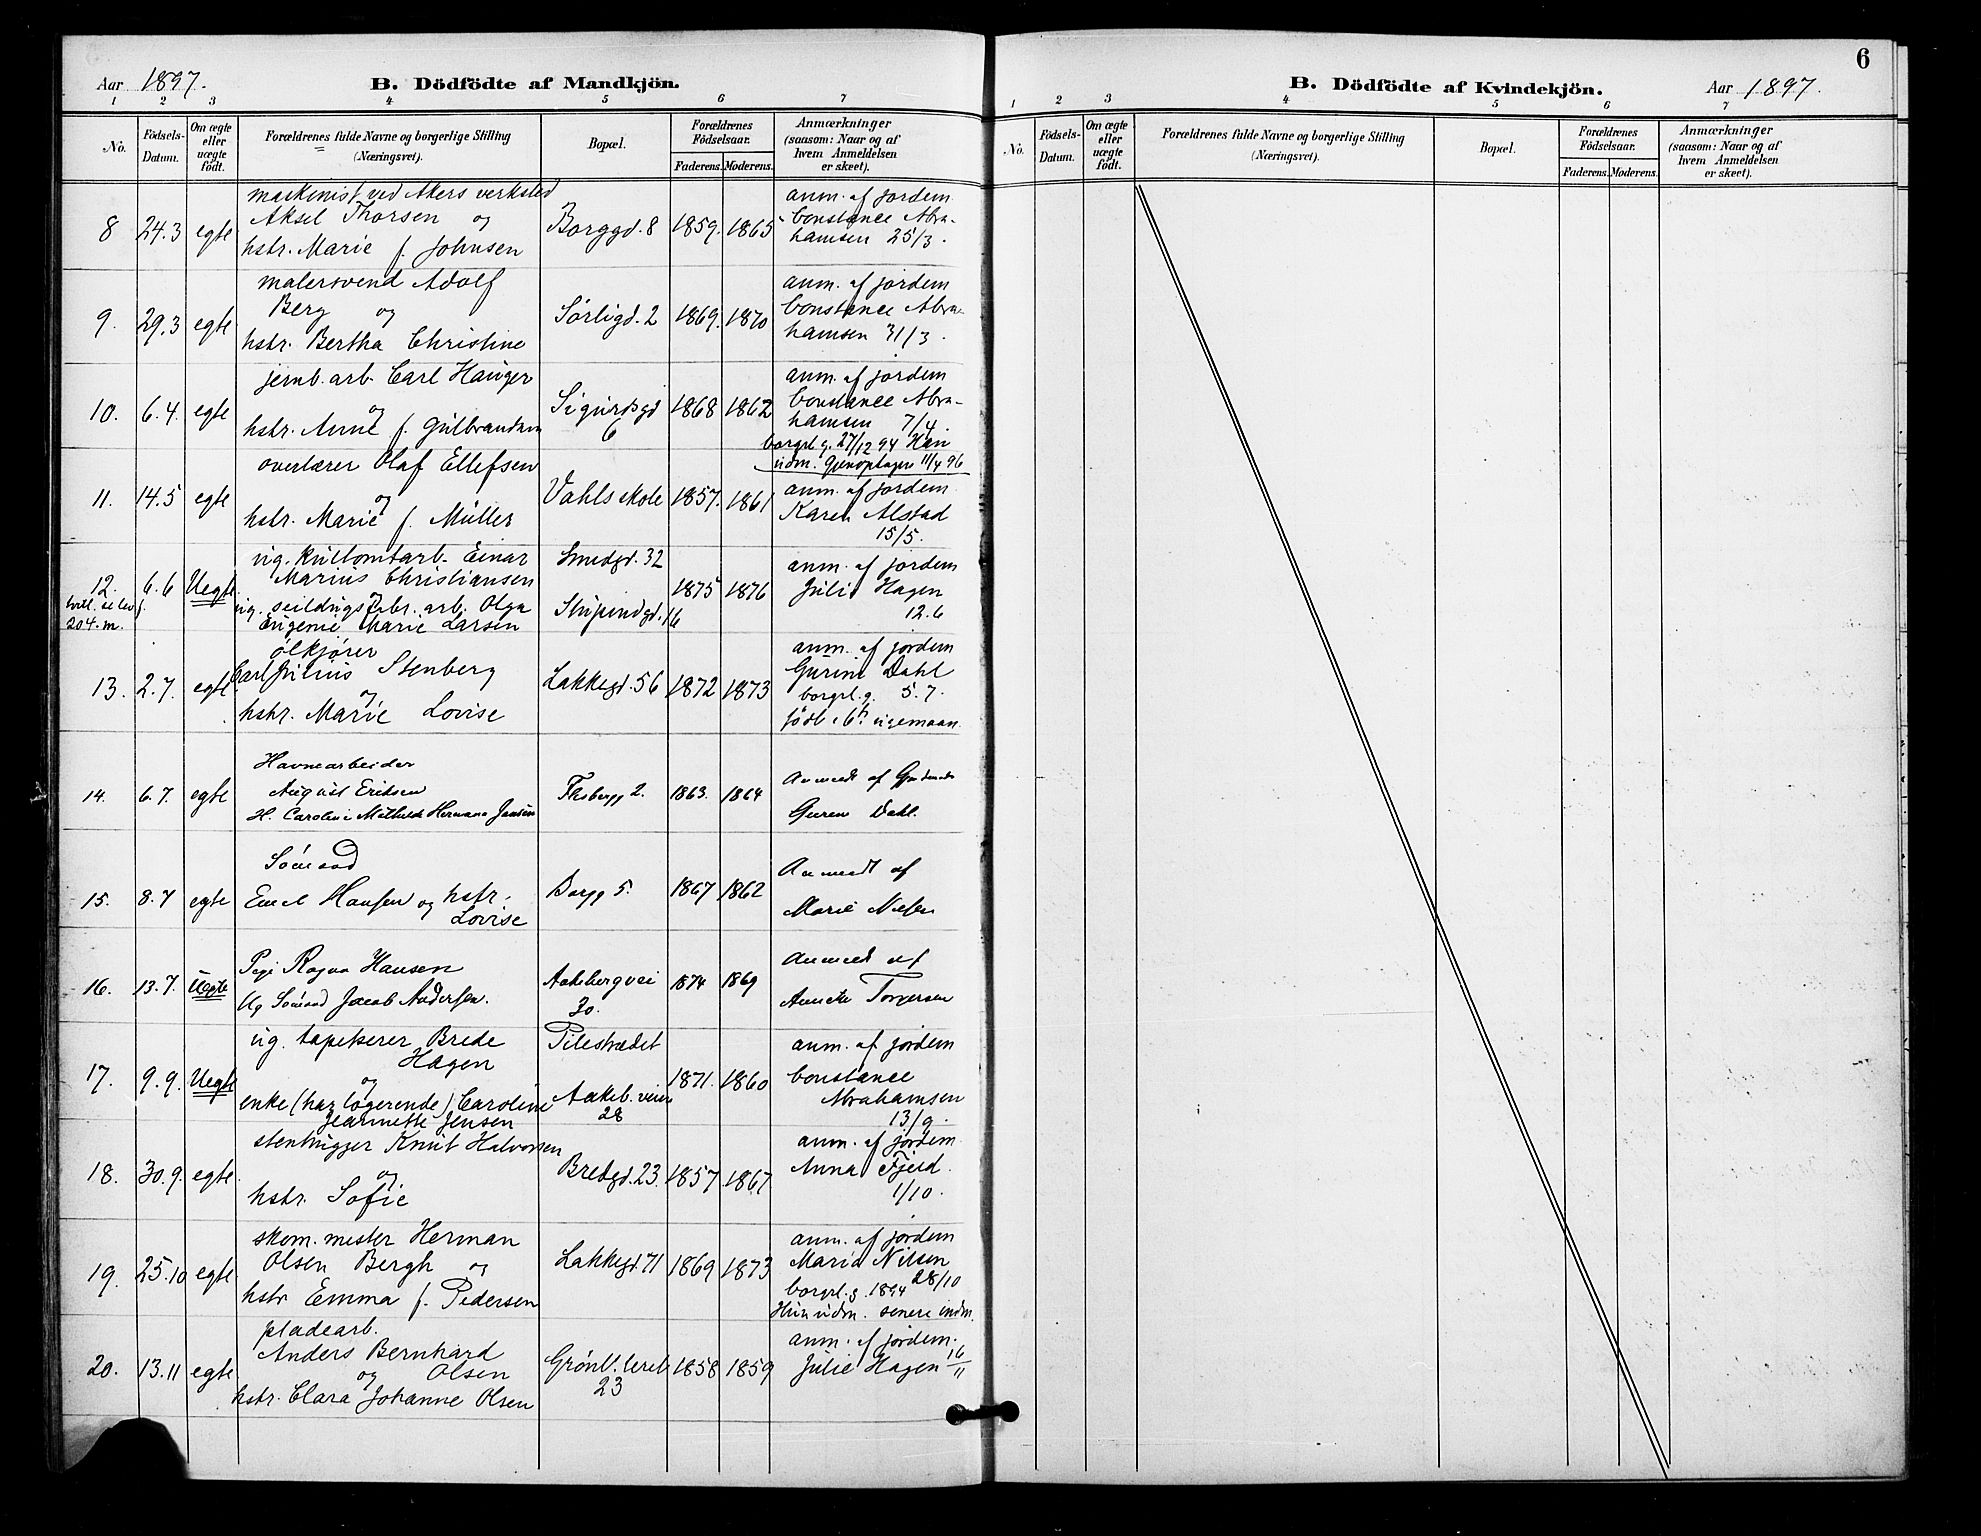 Aar 1897. B. Dödfödte af Mandkjön.
1 2 3 4 5 6 7
No. Födsels-Datum. Om ægte eller uægte födt. Forældrenes fulde Navne og borgerlige Stilling (Næringsvei). Bopæl. Forældrenes Födselsaar. Faderens. Moderens. Anmærkninger (saasom: Naar og af hvem Anmeldelsen er skeet).
maskinist ved Akers verksted
Aksel Thorsen og
hstr. Marie f. Johnsen
8 24.3 egte Borggd. 8 1859. 1865
anm. af jordem.
Constance Abra-
hamsen 25/3.
malersvend Adolf
Berg og
hstr. Bertha Christine
9. 29.3 egte Sörligd. 2 1869. 1870
anm. af jordem
Constance Abra-
hamsen 31/3.
jernb. arb. Carl Hauger
og
hstr. Anne f. Gulbrandsen
10. 6.4. egte Sigurdsgd 6 1868 1862
anm. af jordem
Constance Abra-
hamsen 7/4.
borgrl. g. 27/12 94 Han
udm. Genoptagen 11/4 96
overlærer Olaf Ellefsen
og
hstr. Marie f. Müller
11. 14.5 egte Vahls skole 1857. 1861
anm. af jordem.
Karen Alstad
15/5.
ug. kultomtarb. Einar
Marius Christiansen
og
ug. seildugsfabr. arb. Olga
Eugenie Marie Larsen
12. 6.6 Uegte
204. m.
Smedgd. 32
Stupindgd. 16
1875 1876
anm. af jordem
Julie Hagen
12.6
ölkjører
Carl Julius Stenberg
og
hstr. Marie Lovise
13. 2.7. egte Lakkegd. 56 1872 1873
anm. af jordem
Gurine Dahl
borgrl. g. 5.7.
Havnearbeider
August Eriksen
H. Caroline Mathilde Hermana Jansen
14. 6.7. egte 2. 1863. 1864
Anmeldt af
Guren Dahl.
Sömand
Emil Hansen og hstr.
Lovise
15. 8.7 egte Borgg 5. 1867 1862
Anmeldt af
Marie Nilsen
Pige Ragna Hansen
Ug Sömand Jacob Andersen.
16. 13.7. Uegte Aakebergvei 30. 1874 1869
Anmeldt af
Annette Torgersen
ug. tapetserer Brede
Hagen
og
enke (har logerende) Caroline
Jeannette Jensen
17. 9.9. Uegte
Pilestrædet
Aakeb. veien
28
1871. 1860
anm. af jordem
Constance
Abrahamsen
13/9.
stenhugger Knut Halvorsen
og
hstr. Sofie
18. 30.9. egte. Bredgd. 23. 1857 1867
anm. af jordem.
Anna Fjeld.
1/10.
skom. mester Herman
Olsen Bergh og
hstr Emma f. Pedersen
19. 25.10 egte Lakkegd 71 1869 1873
anm. af jordem
Maria Nilsen
28/10
borgrl. g. 1894
Hun udm. senere indm.
pladearb.
Anders Bernhard
og Olsen
hstr. Clara Johanne Olsen
20. 13.11 egte Grönl. leret 23 1858 1859
anm. af jordem.
Julie Hagen 16/11
6
B. Dödfödte af Kvindekjön. Aar 1897.
1 2 3 4 5 6 7
No. Födsels-Datum. Om ægte eller uægte födt. Forældrenes fulde Navne og borgerlige Stilling (Næringsvei). Bopæl. Forældrenes Födselsaar. Faderens. Moderens. Anmærkninger (saasom: Naar og af hvem Anmeldelsen er skeet).